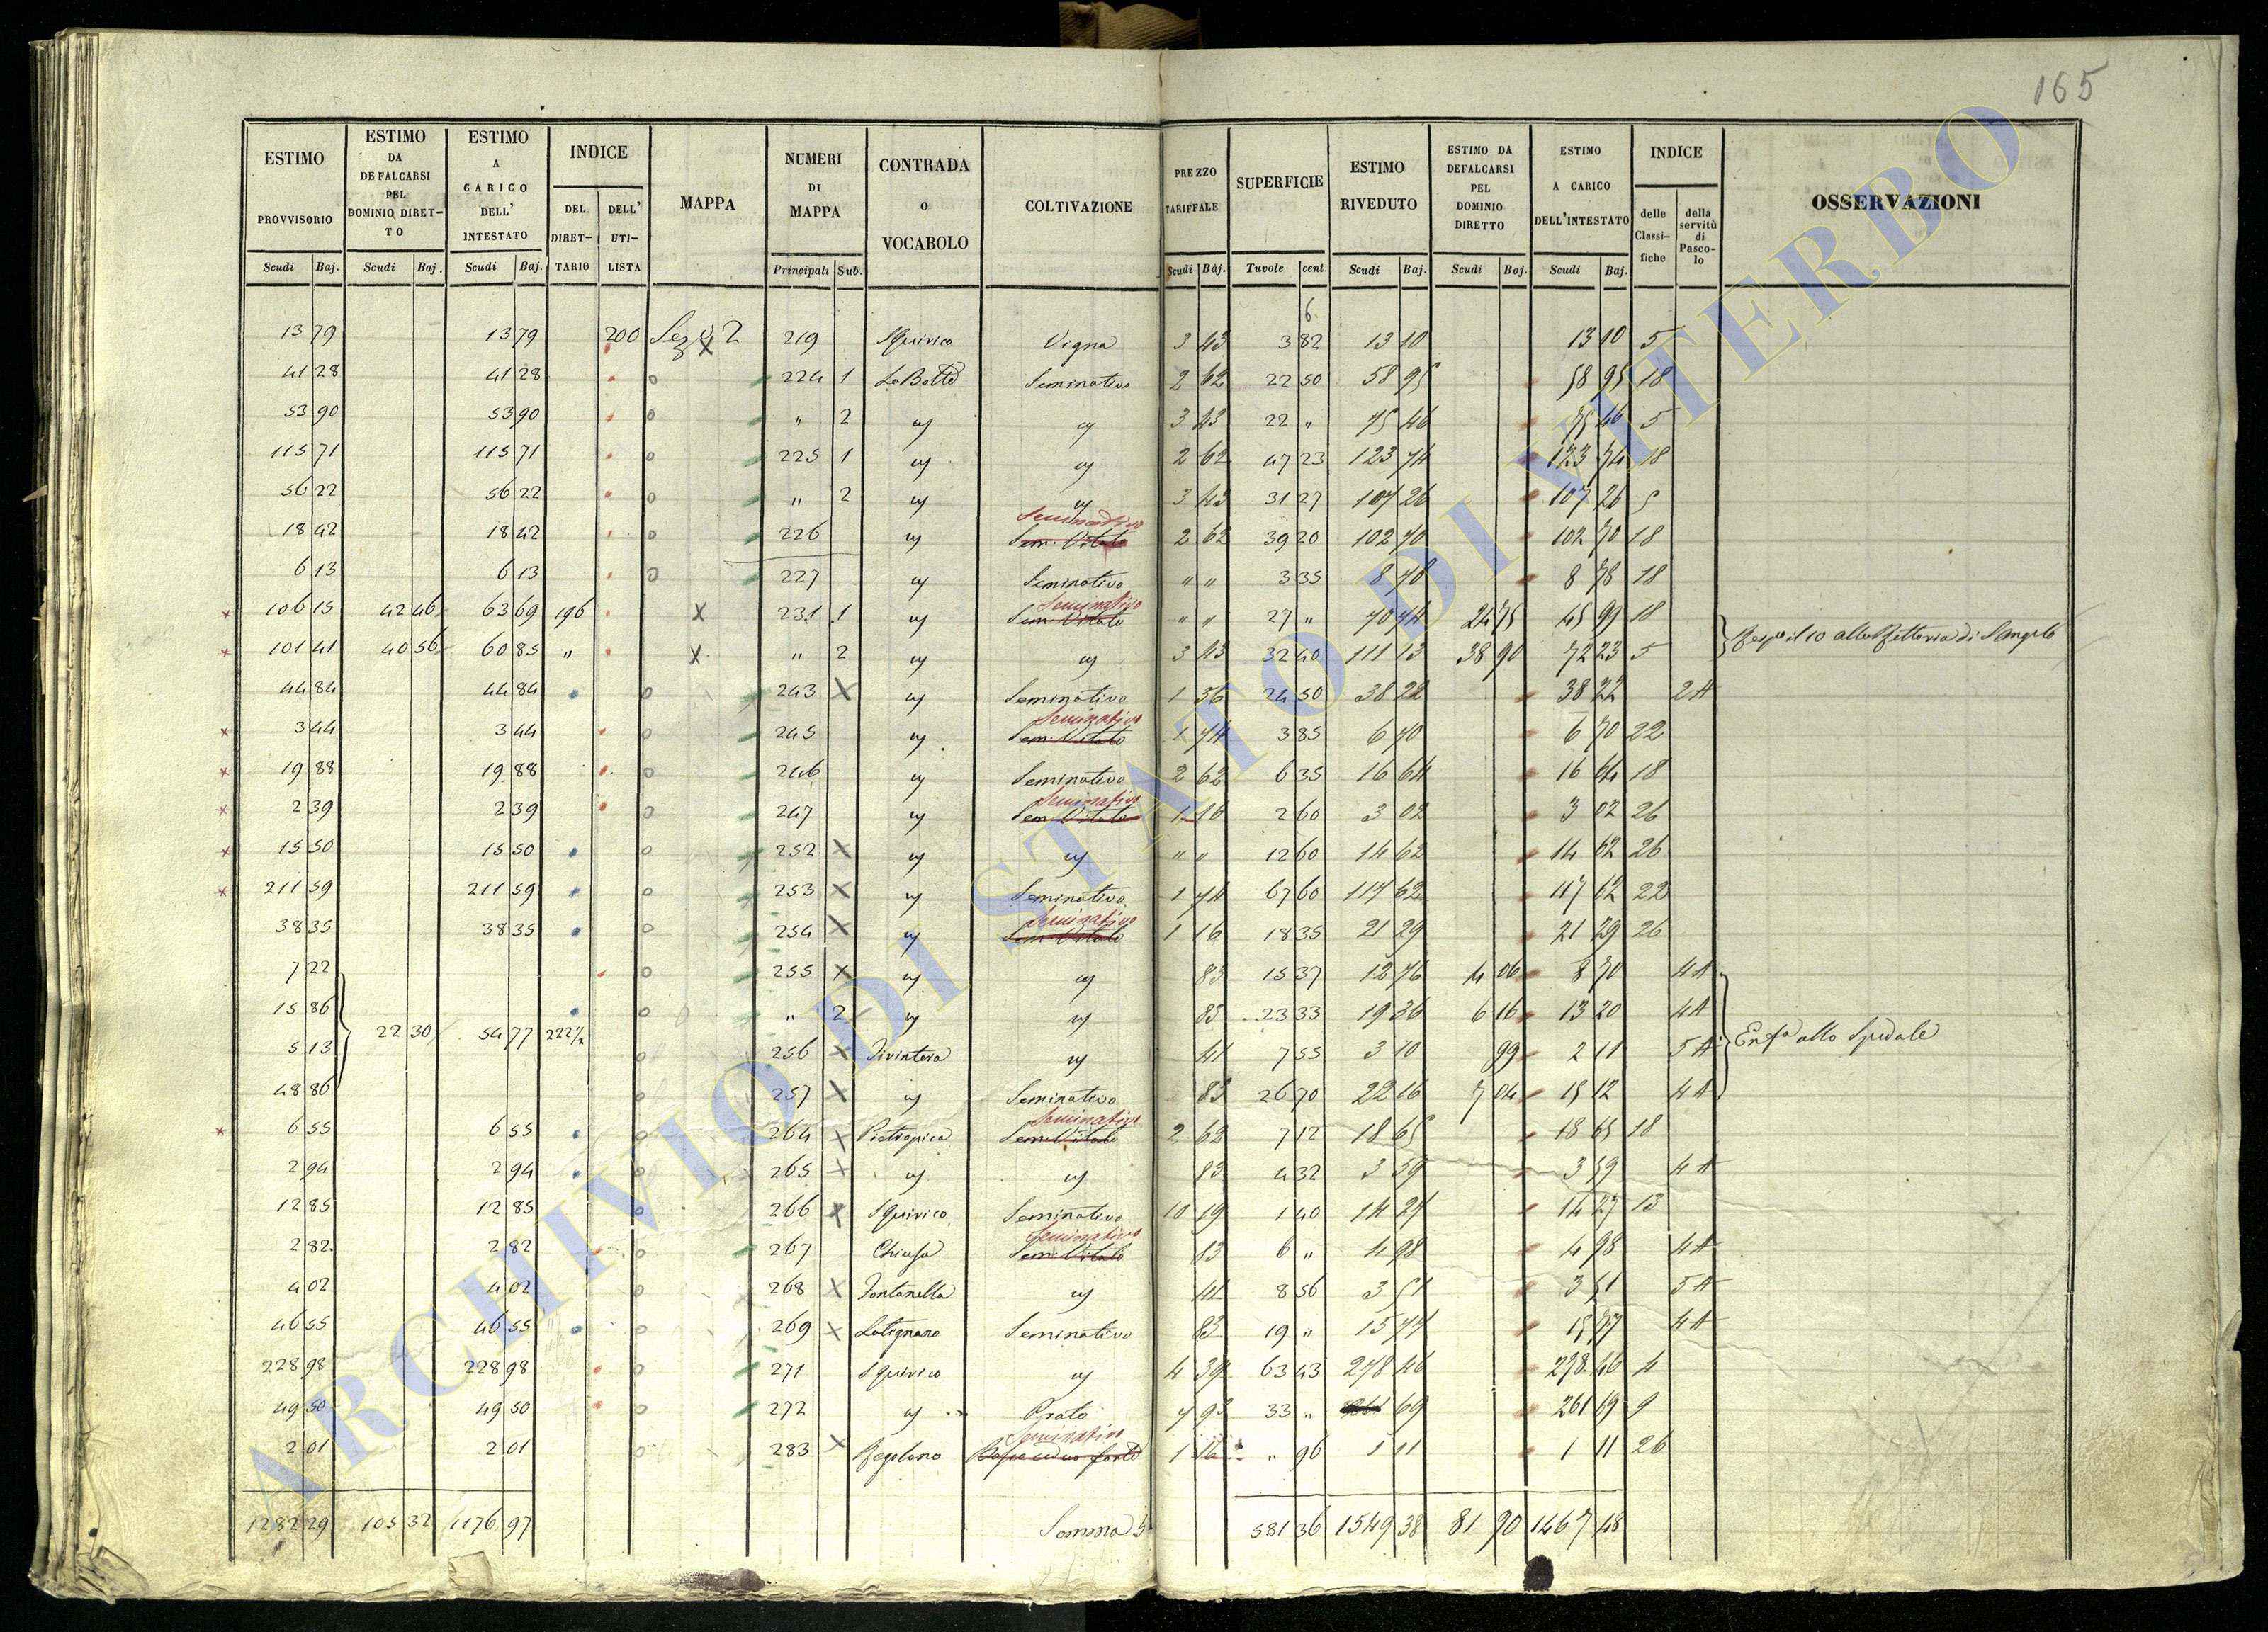 165
ESTIMO PROVVISORIO Scudi Baj.
ESTIMO DA DEFALCARSI PEL DOMINIO DIRETTO Scudi Baj.
ESTIMO A CARICO DELL' INTESTATO Scudi Baj.
INDICE DEL DIRETTARIO DELL' UTILISTA
MAPPA
NUMERI DI MAPPA Principali Sub.
CONTRADA o VOCABOLO
COLTIVAZIONE
PREZZO TARIFFALE Scudi Baj.
SUPERFICIE Tavole cent.
ESTIMO RIVEDUTO Scudi Baj.
ESTIMO DA DEFALCARSI PEL DOMINIO DIRETTO Scudi Baj.
ESTIMO A CARICO DELL'INTESTATO Scudi Baj.
INDICE delle Classifiche della servitù di Pascolo
OSSERVAZIONI
6
13 79 13 79 200 2 219 S Quirico Vigna 3 43 3 82 13 10 13 10 5
41 28 41 28 224 1 La Botte Seminativo 2 62 22 50 58 95 58 95 18
53 90 53 90 " 2 3 43 22 " 75 46 75 46 5
115 71 115 71 225 1 2 62 47 23 123 74 123 74 18
56 22 56 22 " 2 3 43 31 27 107 26 107 26 5
18 42 18 42 226 Seminativo Sem. Vitato 2 62 39 20 102 70 102 70 18
6 13 6 13 227 Seminativo " " 3 35 8 78 8 78 18
106 15 42 46 63 69 196 X 231 1 Seminativo Sem. Vitato " " 27 " 70 74 24 75 45 99 18
101 41 40 56 60 85 " X " 2 3 43 32 40 111 13 38 90 72 23 5
44 84 44 84 243 X Seminativo 1 56 24 50 38 22 38 22 2 A
3 44 3 44 245 Seminativo Sem. Vitato 1 74 3 85 6 70 6 70 22
19 88 19 88 246 Seminativo 2 62 6 35 16 64 16 64 18
2 39 2 39 247 Seminativo Sem. Vitato 1 16 2 60 3 02 3 02 26
15 50 15 50 252 X " " 12 60 14 62 14 62 26
211 59 211 59 253 X Seminativo 1 74 67 60 117 62 117 62 22
38 35 38 35 254 X Seminativo Sem. Vitato 1 16 18 35 21 29 21 29 26
7 22 255 X 83 15 37 12 76 4 06 8 70 4 A
15 86 " 2 83 23 33 19 36 6 16 13 20 4 A
22 30 54 77 222 1/2 allo Spedale
5 13 256 X 41 7 55 3 10 99 2 11 5 A
48 86 257 X Seminativo 83 26 70 22 16 7 04 15 12 4 A
6 55 6 55 264 X Seminativo Sem. Vitato 2 62 7 12 18 65 18 65 18
2 94 2 94 265 X 83 4 32 3 59 3 59 4 A
12 85 12 85 266 X S Quirico Seminativo 10 19 1 40 14 27 14 27 13
2 82 2 82 267 Chiusa Seminativo Sem. Vitato 83 6 " 4 98 4 98 4 A
4 02 4 02 268 X Fontanella 41 8 56 3 51 3 51 5 A
46 55 46 55 269 X Latignano Seminativo 83 19 " 15 77 15 77 4 A
228 98 228 98 271 S Quirico 4 39 63 43 278 46 278 46 4
49 50 49 50 272 Prato 7 93 33 " 69 261 69 9
2 01 2 01 283 X Regolano Seminativo 1 16 " 96 1 11 1 11 26
1282 29 105 32 1176 97 Somma 581 36 1549 38 81 90 1467 48
ARCHIVIO DI STATO DI VITERBO